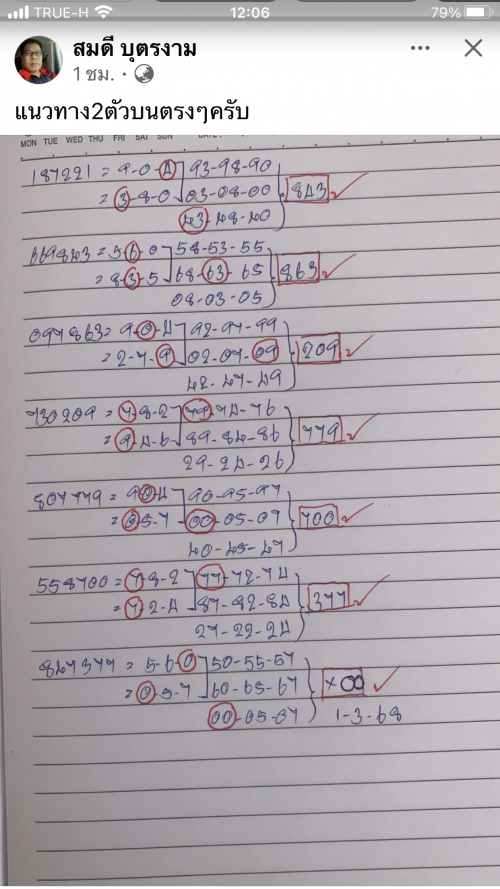 TRUE-H 12:06 79%
สมดี บุตรงาม
1 ชม.
แนวทาง2ตัวบนตรงๆครับ
MON TUE WED THU FRI SAT SUN DATE:
187221 = 9-0-4 93-98-90
= 3-8-0 03-08-00 843
43-48-40
669843 = 5-6-0 58-53-55
= 8-3-5 68-63-65 863
08-03-05
097863 = 9-0-4 92-97-99
= 2-7-9 02-07-09 209
42-47-49
730209 = 7-8-2 79-74-76
= 9-4-6 89-84-86 779
29-24-26
807779 = 9-0-4 90-95-97
= 0-5-7 00-05-07 700
40-45-47
558700 = 7-8-2 77-72-74
= 7-2-4 87-82-84 377
27-22-24
847377 = 5-6-0 50-55-57
= 0-5-7 60-65-67 ×00
00-05-07 1-3-68